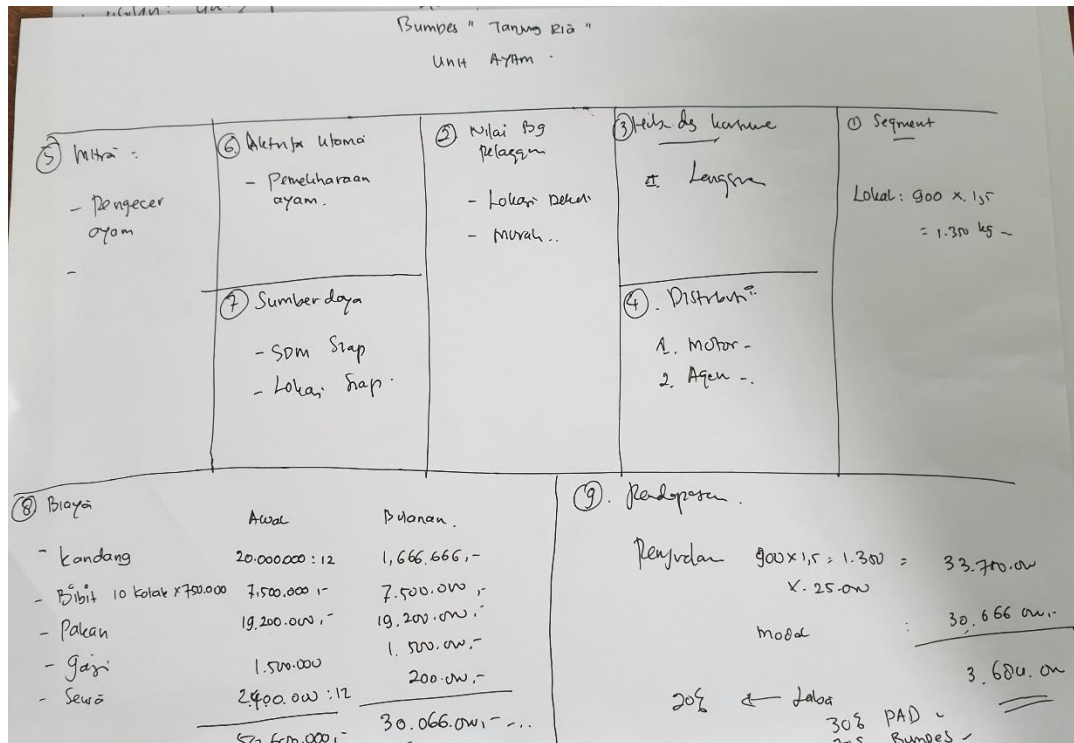 Bumdes " Tanjung Ria "
Unit AYAM
⑤ Mitra :
- Pengecer
ayam
-
⑥ Aktivitas Utama
- Pemeliharaan
ayam.
⑦ Sumber daya
- SDM Siap
- Lokasi Siap.
② Nilai Bg
Pelanggan
- Lokasi Dekat
- Murah..
③ Hub dg
Langsung
④. Distribusi
1. Motor -
2. Agen -.
① Segment
Lokal: 900 x 1,5
= 1.350 kg -
⑧ Biaya
Awal Bulanan.
- Kandang 20.000.000 : 12 1,666.666,-
- Bibit 10 kotak x 750.000 7.500.000,- 7.500.000,-
- Pakan 19.200.000,- 19.200.000,-
- Gaji 1.500.000 1.500.000,-
- Sewa 2.400.000 : 12 200.000,-
30.066.000,-
⑨. Pendapatan.
Penjualan 900 x 1,5 = 1.350 = 33.750.000
x. 25.000
Modal : 30.066.000,-
3.684.000
20% ← Laba
30% PAD
Bumdes -